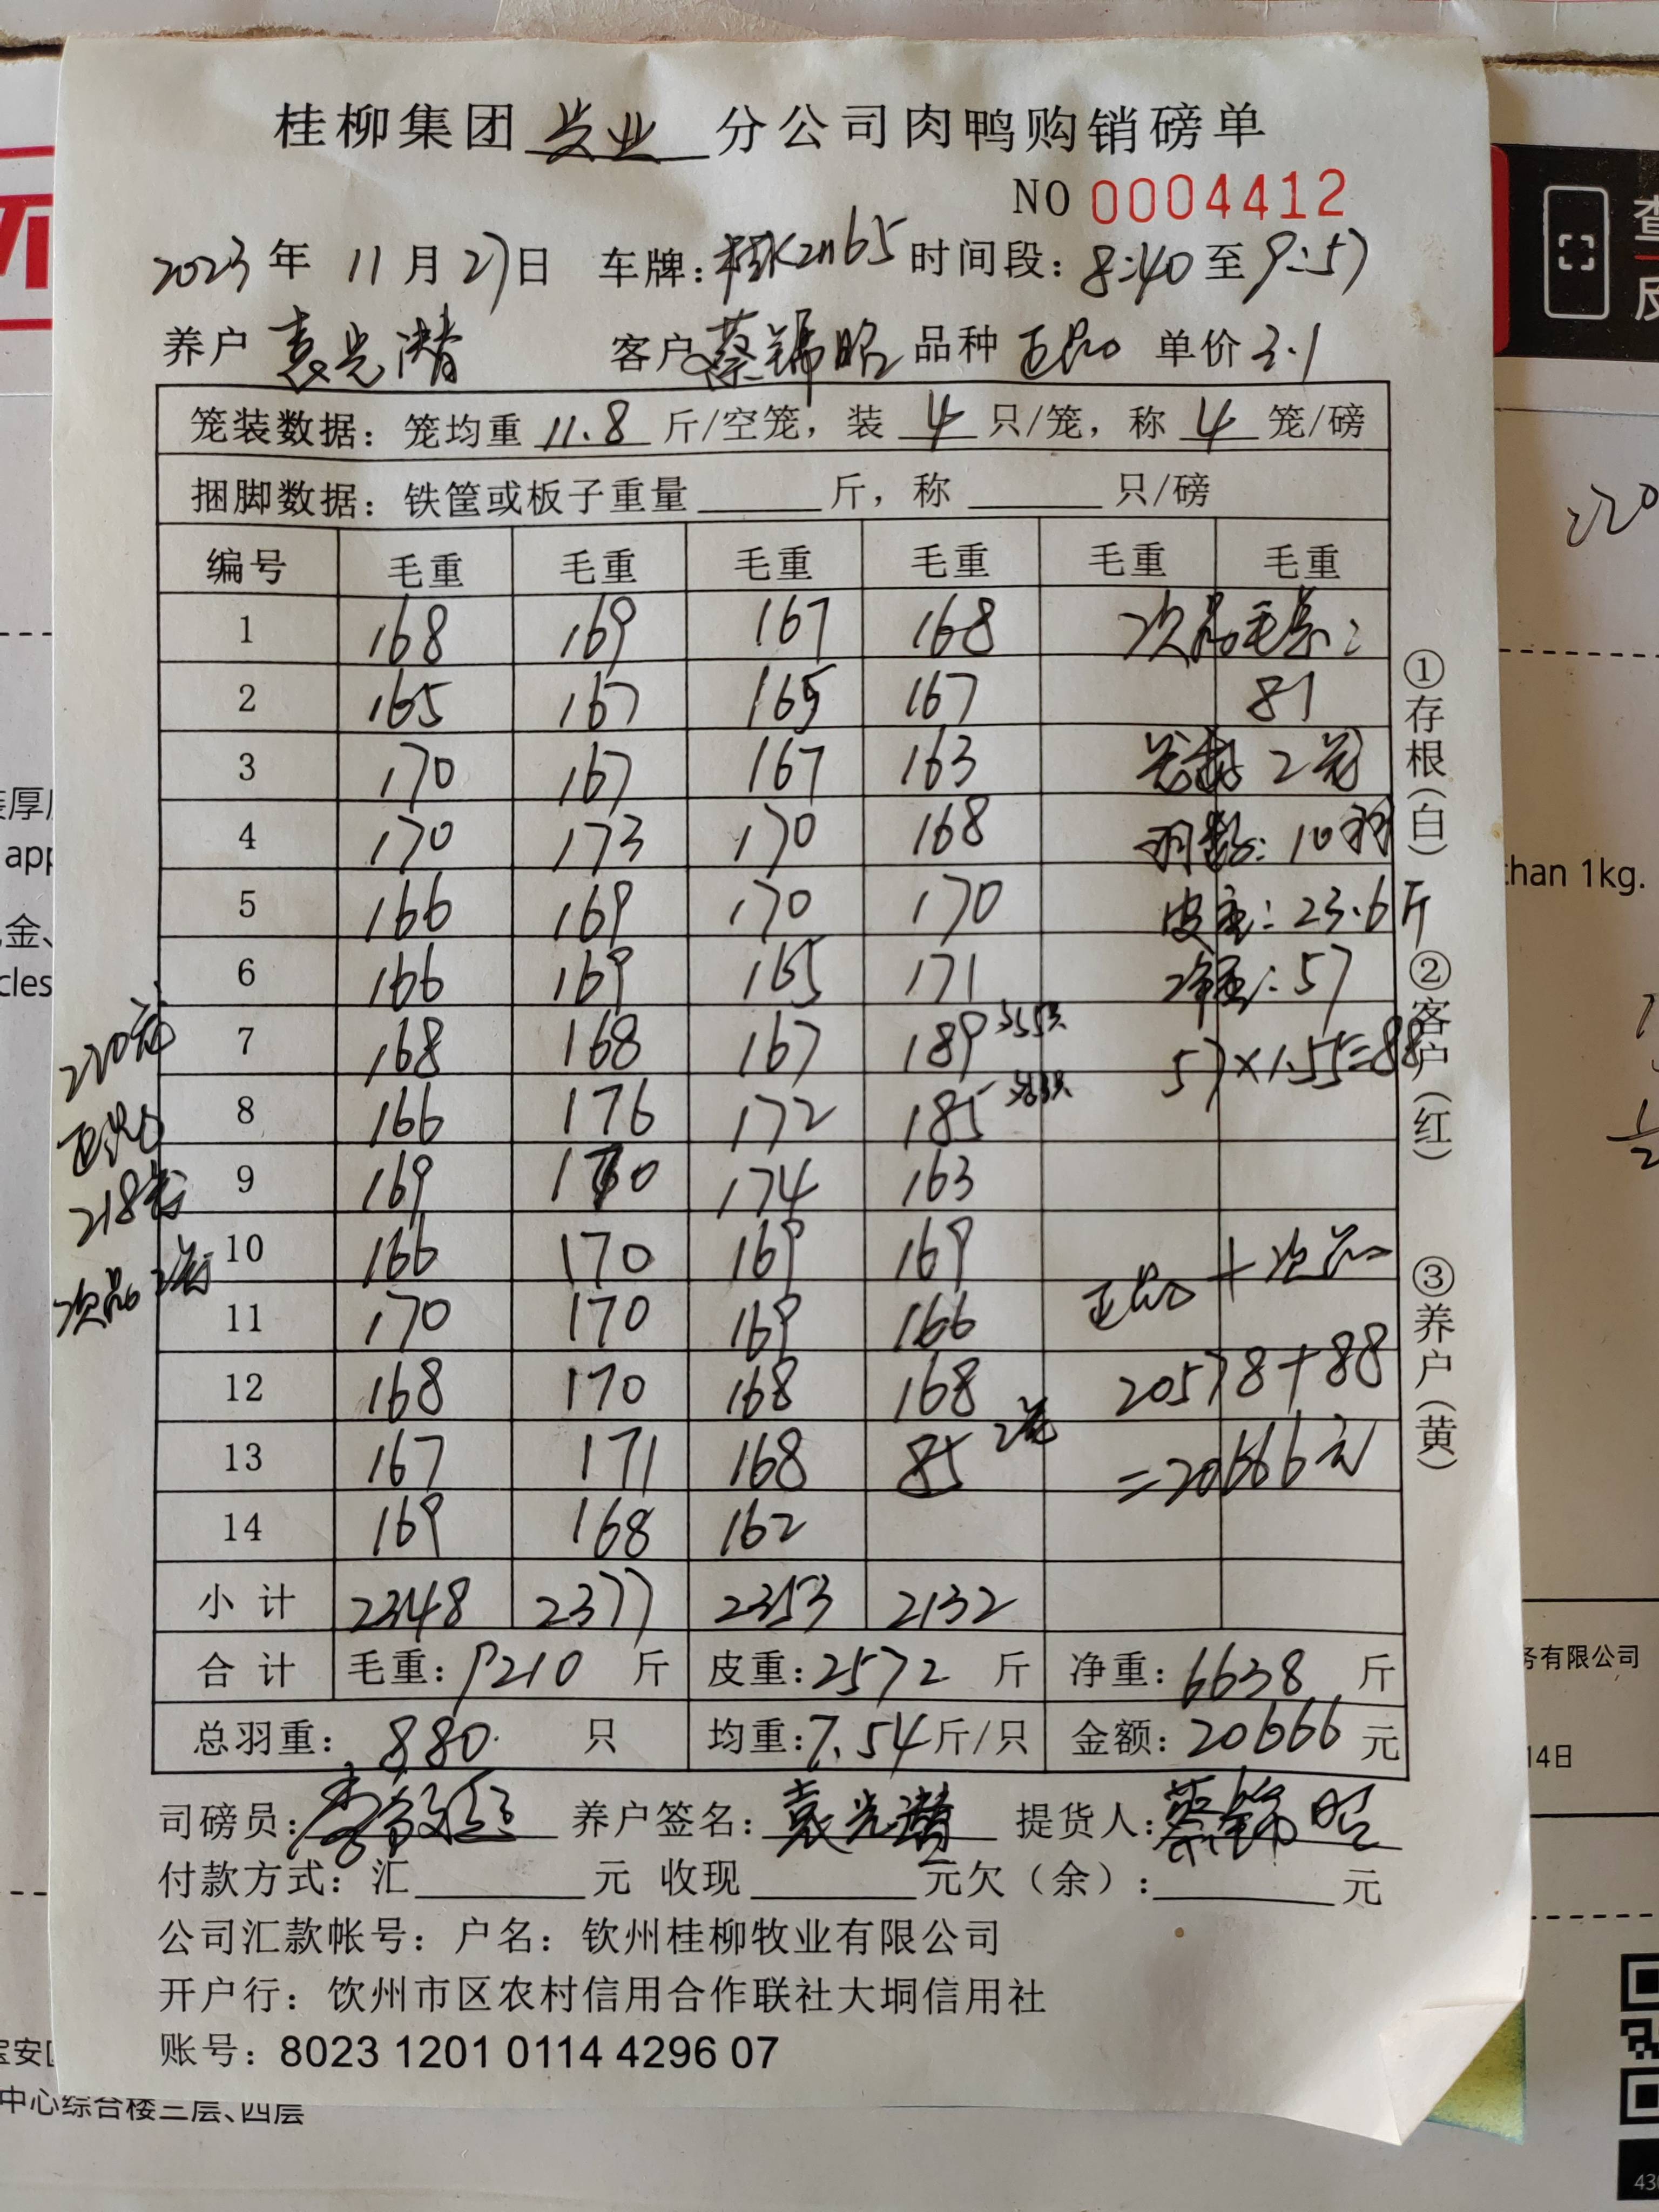 桂柳集团 兴业 分公司肉鸭购销磅单
NO 0004412
2023年 11月27日 车牌:桂K2H65 时间段:8:40至9:57
养户 袁光潜 客户 蔡锦昭 品种 正品 单价 3.1
笼装数据:笼均重 11.8 斤/空笼,装 4 只/笼,称 4 笼/磅
捆脚数据:铁筐或板子重量 斤,称 只/磅
编号 毛重 毛重 毛重 毛重 毛重 毛重
1 168 169 167 168 次品毛重:
2 165 167 165 167 81
3 170 167 167 163 笼数 2笼
4 170 173 170 168 羽数:10羽
5 166 169 170 170 皮重:23.6斤
6 166 169 165 171 净重:57
7 168 168 167 189 57×1.55=88
8 166 176 172 185
9 169 170 174 163
10 166 170 169 169 正品+次品
11 170 170 169 166
12 168 170 168 168 20578+88
13 167 171 168 85 2笼 =20666元
14 169 168 162
小计 2348 2377 2353 2132
合计 毛重:9210 斤 皮重:2572 斤 净重:6638 斤
总羽重: 880 只 均重:7.54斤/只 金额:20666 元
220笼
正品
218笼
次品 2笼
司磅员: 养户签名:袁光潜 提货人:蔡锦昭
付款方式:汇 元 收现 元欠(余): 元
公司汇款帐号:户名:钦州桂柳牧业有限公司
开户行:饮州市区农村信用合作联社大垌信用社
账号:8023 1201 0114 4296 07
①存根(白)
②客户(红)
③养户(黄)
han 1kg.
务有限公司
14日
中心综合楼三层、四层